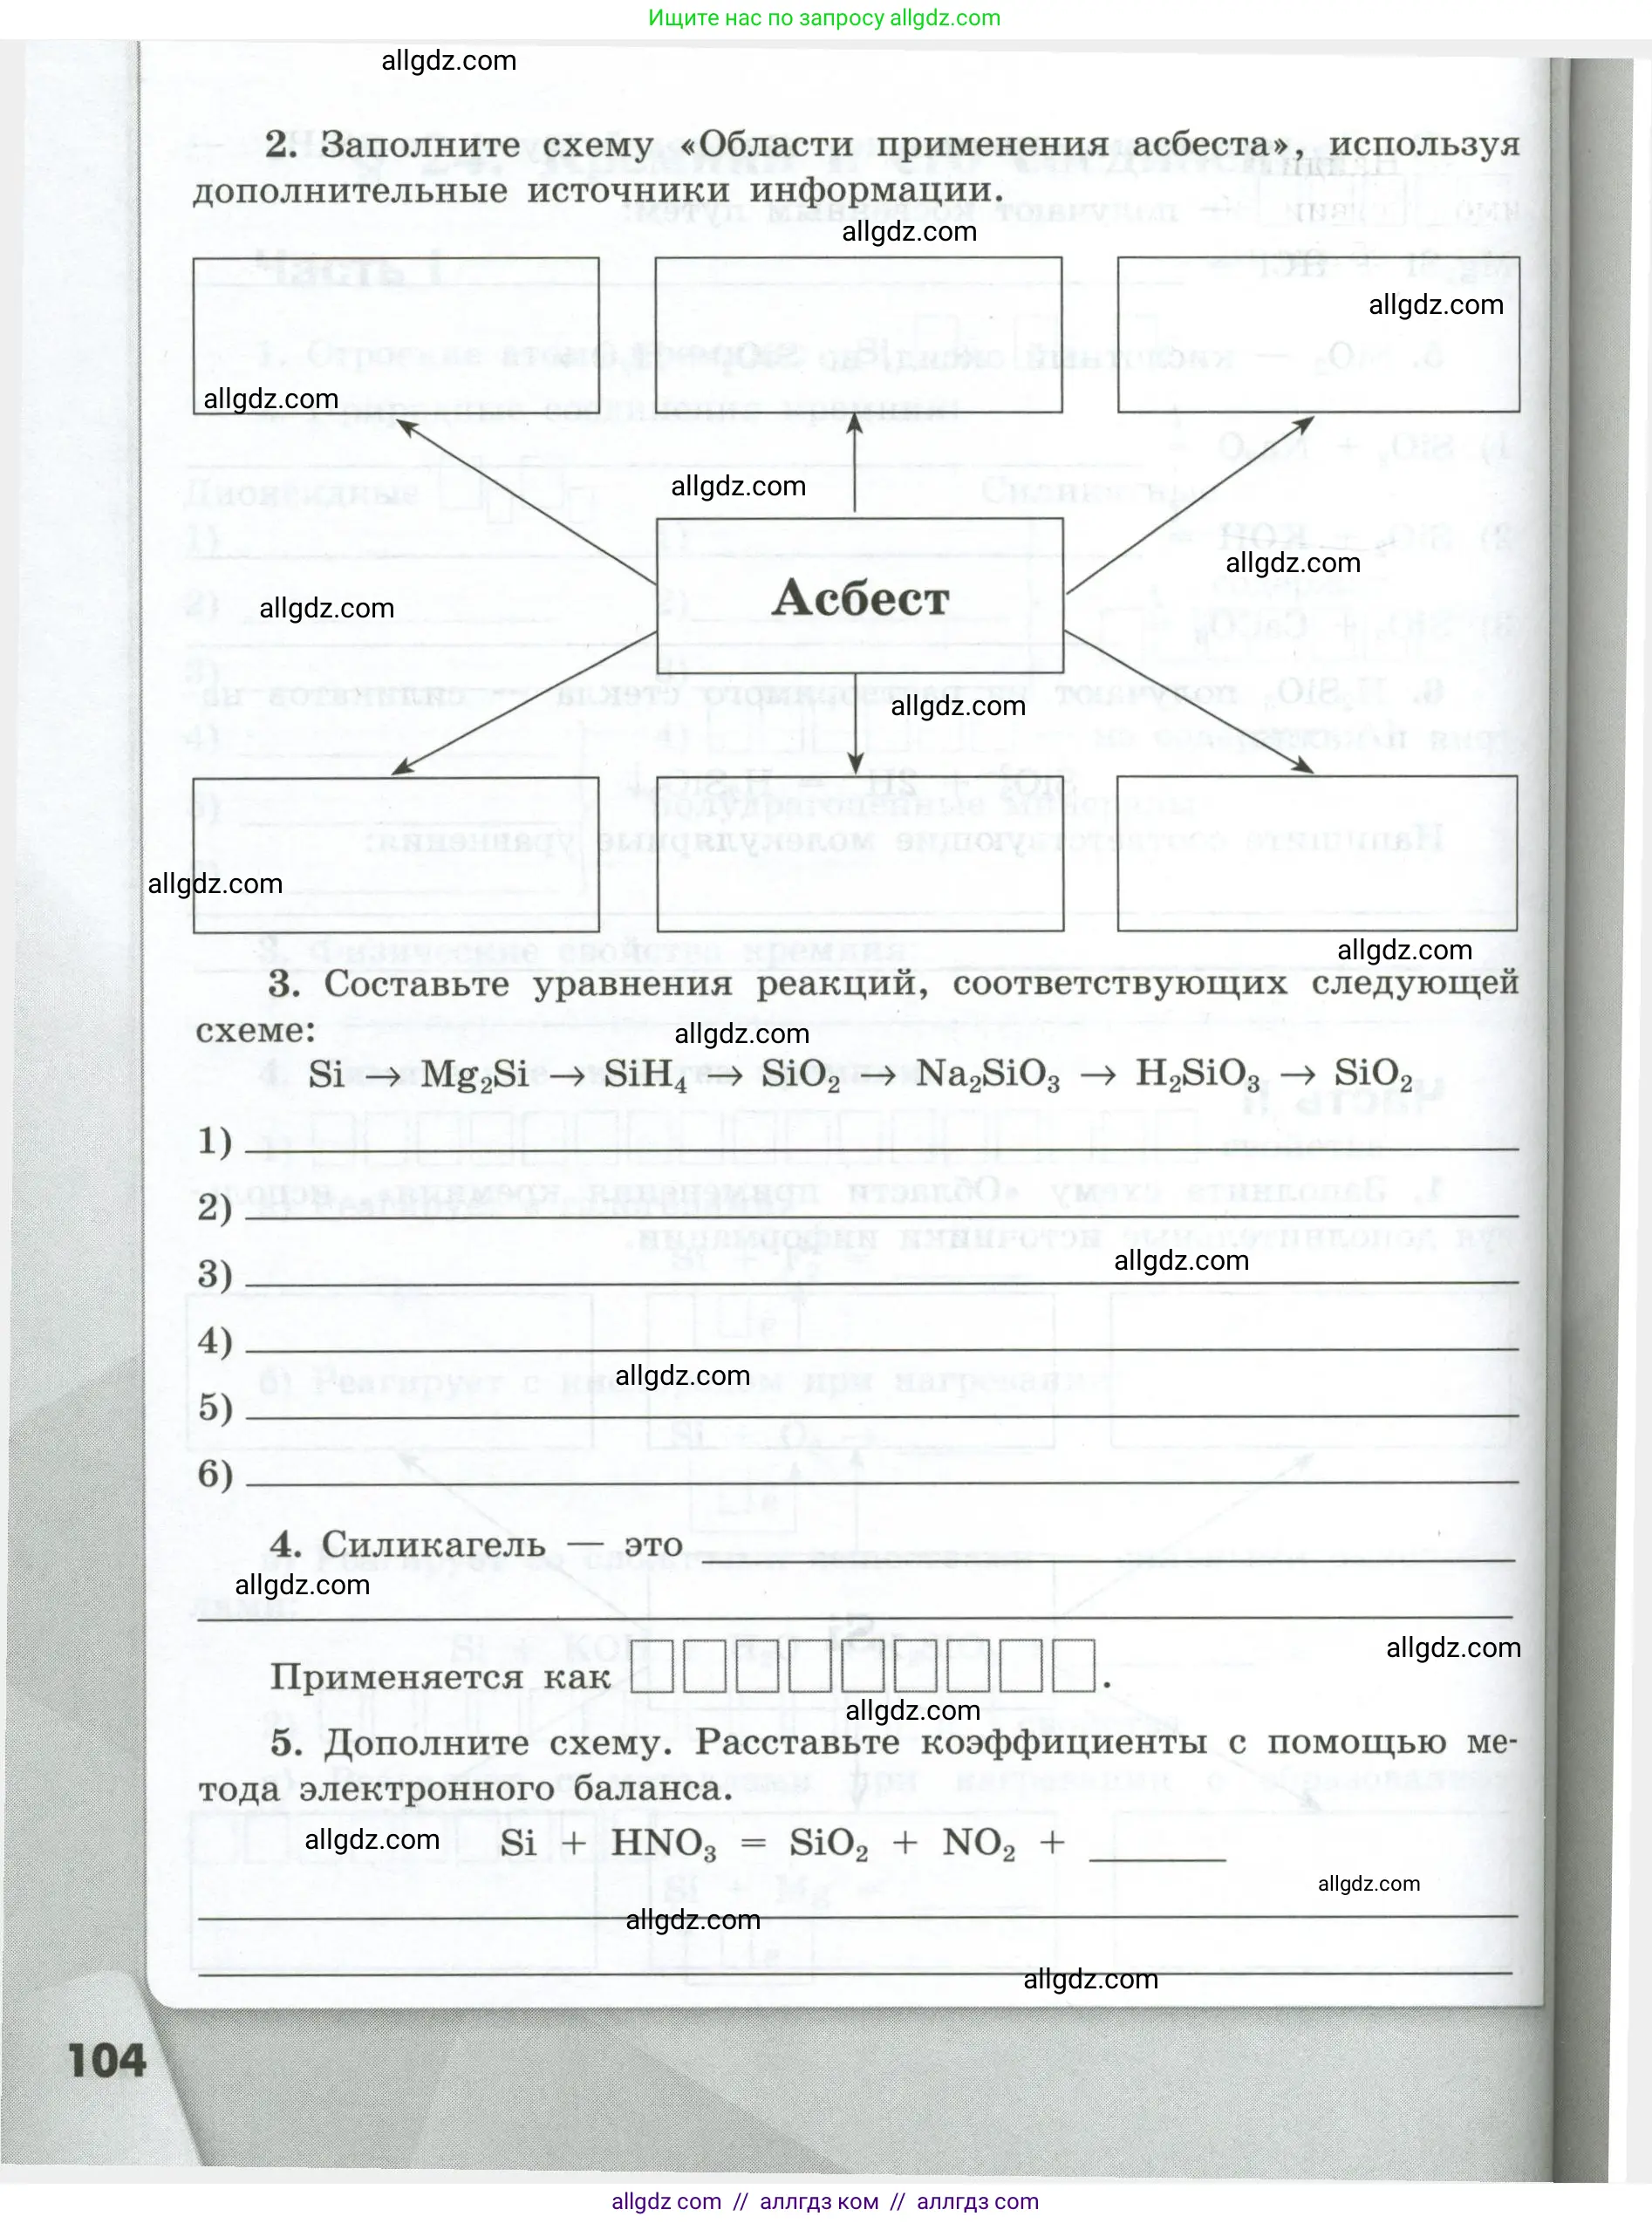 Ищите нас по запросу allgdz.com
allgdz.com
2. Заполните схему «Области применения асбеста», используя
дополнительные источники информации.
allgdz.com
allgdz.com
allgdz.com
allgdz.com
allgdz.com
Асбест
allgdz.com
allgdz.com
allgdz.com
allgdz.com
3. Составьте уравнения реакций, соответствующих следующей
схеме:
allgdz.com
Si → Mg₂Si → SiH₄ → SiO₂ → Na₂SiO₃ → H₂SiO₃ → SiO₂
1)
2)
3)
allgdz.com
4)
allgdz.com
5)
6)
4. Силикагель — это
allgdz.com
Применяется как
.
allgdz.com
allgdz.com
5. Дополните схему. Расставьте коэффициенты с помощью ме-
тода электронного баланса.
allgdz.com
Si + HNO₃ = SiO₂ + NO₂ +
allgdz.com
allgdz.com
allgdz.com
104
allgdz com // аллгдз ком // аллгдз com